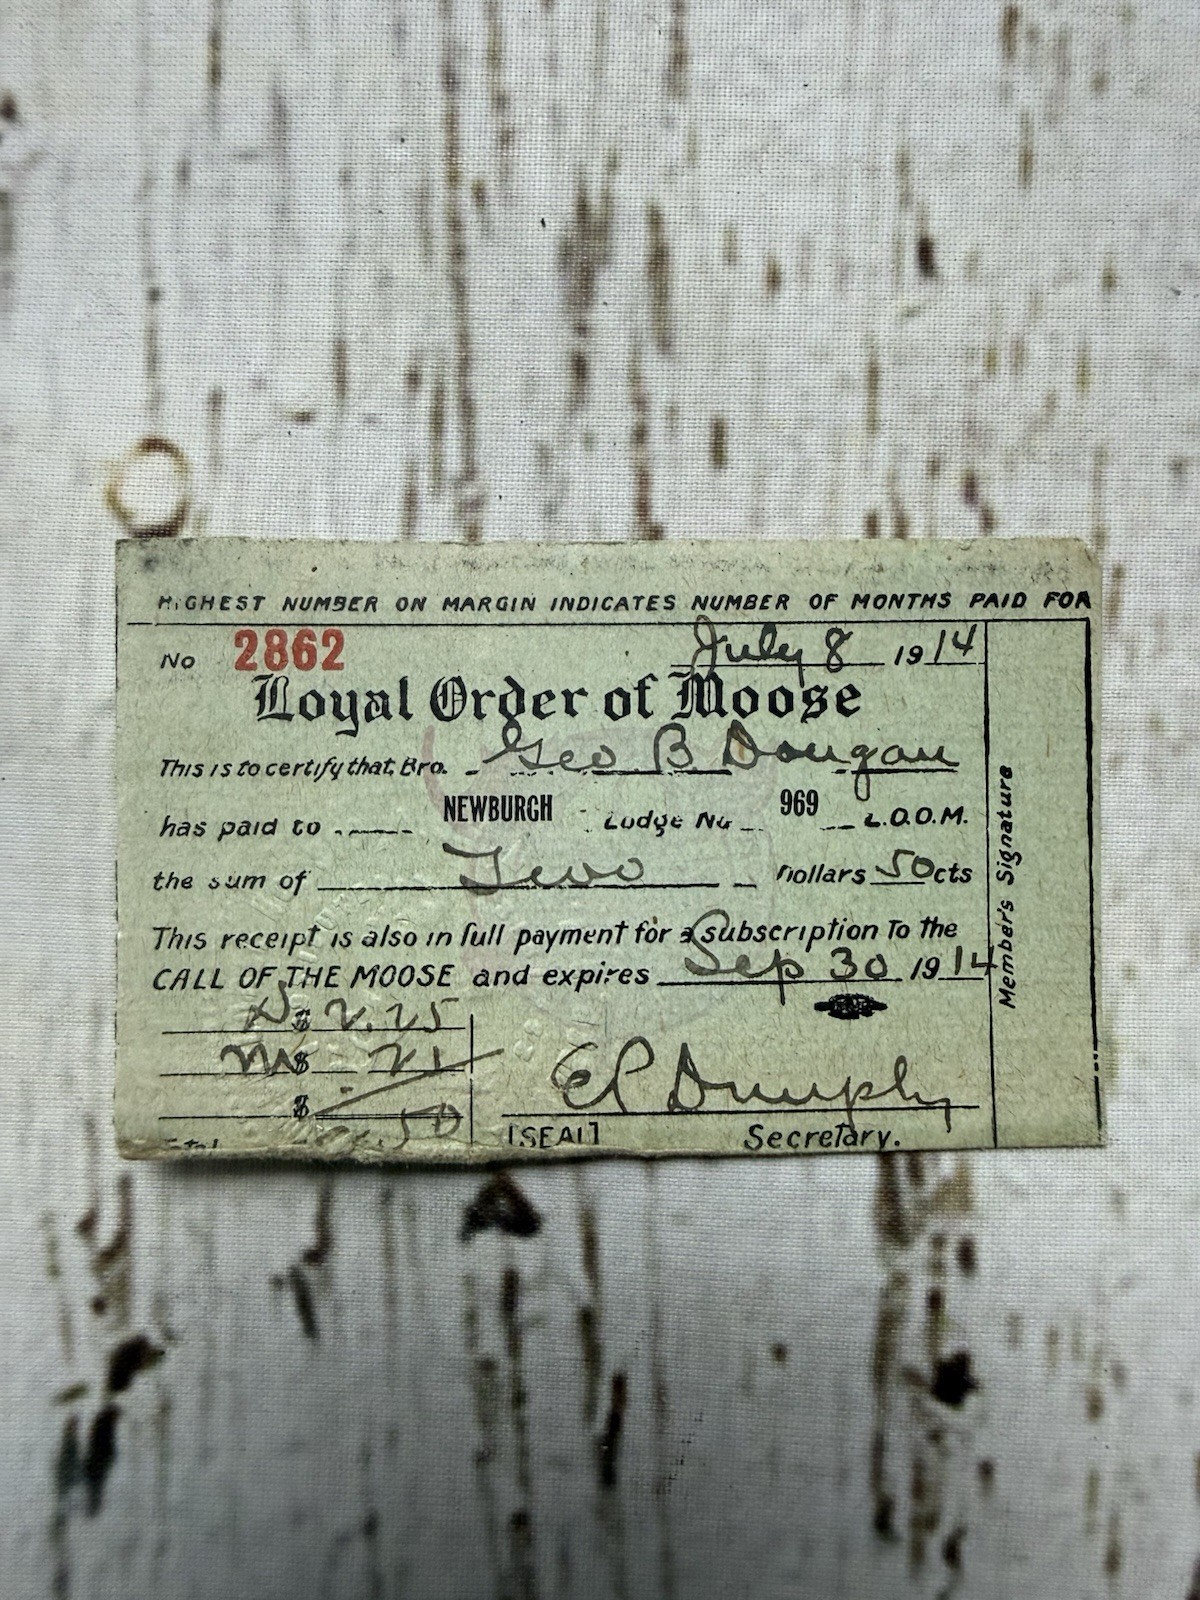 HIGHEST NUMBER ON MARGIN INDICATES NUMBER OF MONTHS PAID FOR
No 2862 July 8 1914
Loyal Order of Moose
This is to certify that, Bro. Geo B Dougan
has paid to NEWBURGH Lodge No 969 L.O.O.M.
the sum of Two Dollars 50 cts
This receipt is also in full payment for a Subscription To the
CALL OF THE MOOSE and expires Sep 30 1914
D $ 2.25
$
$ .50
[SEAL] Secretary.
Member's Signature